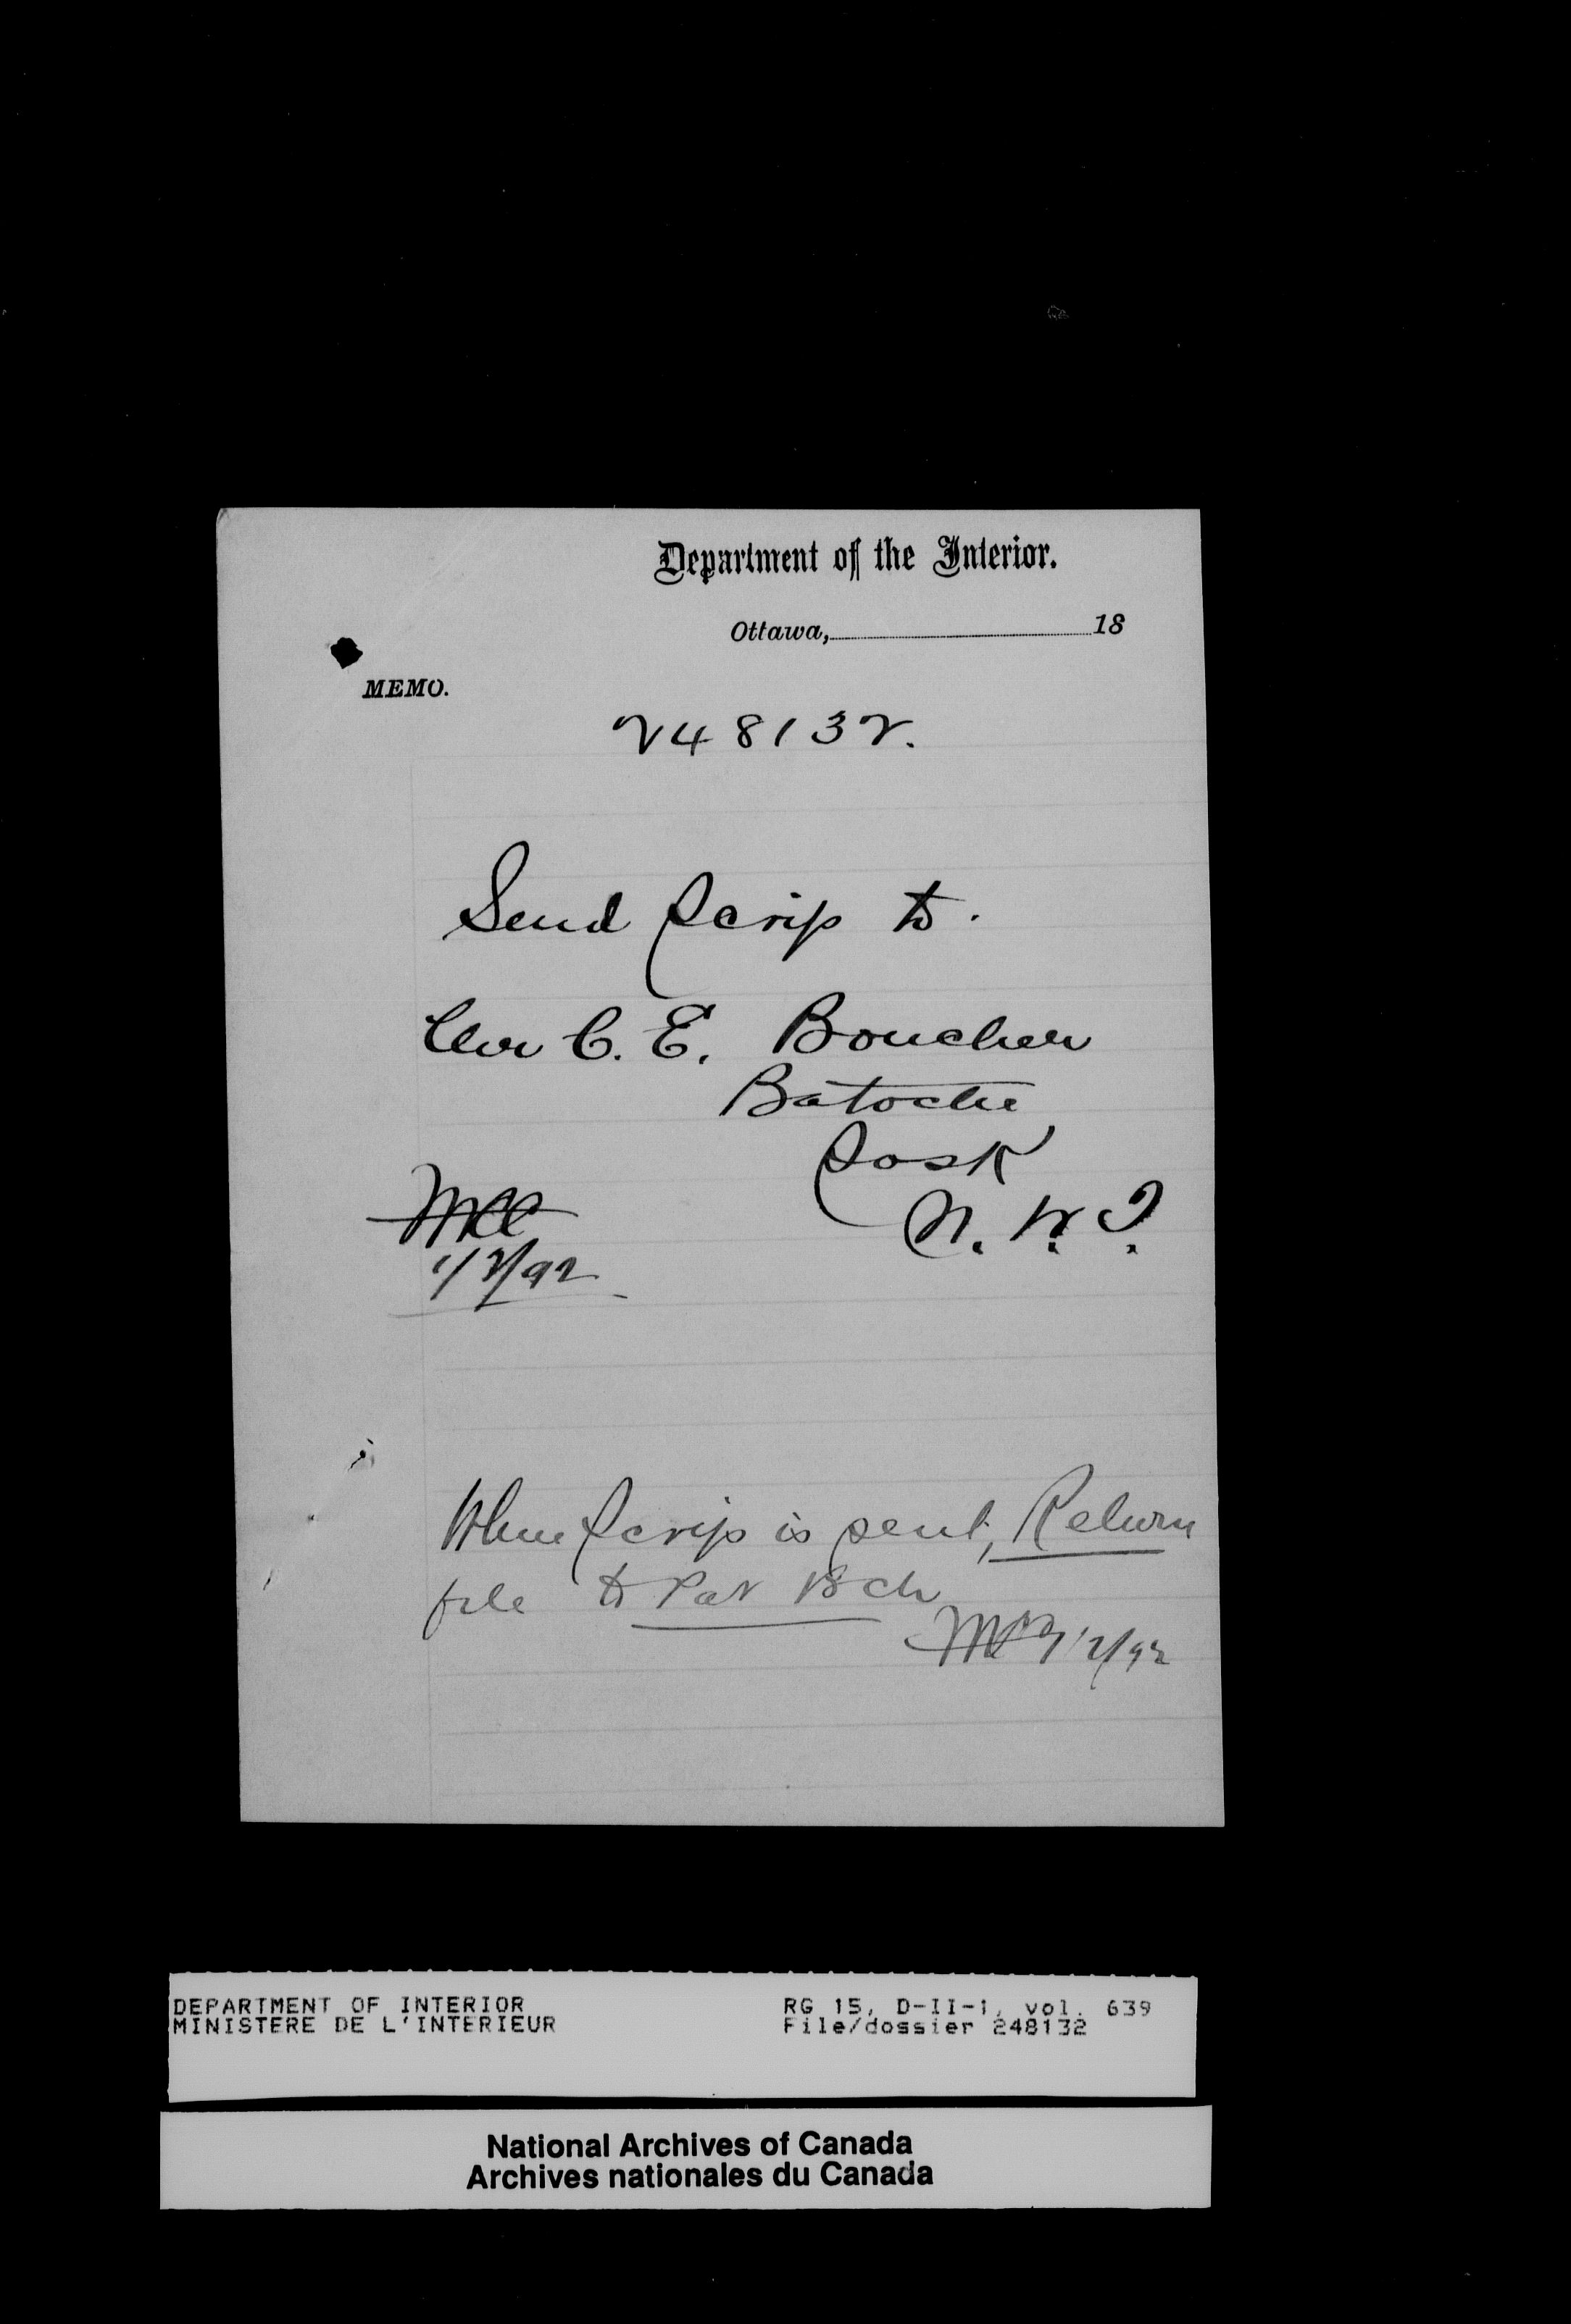 Department of the Interior.
Ottawa, 18
MEMO.
248132.
Send Scrip to.
C. E. Boucher
Batoche
Sask
N. W. T.
1/2/92
When Scrip is sent, Return
file to Pat Bch
1/2/92
DEPARTMENT OF INTERIOR
MINISTERE DE L'INTERIEUR
RG 15, D-II-1, vol. 639
File/dossier 248132
National Archives of Canada
Archives nationales du Canada